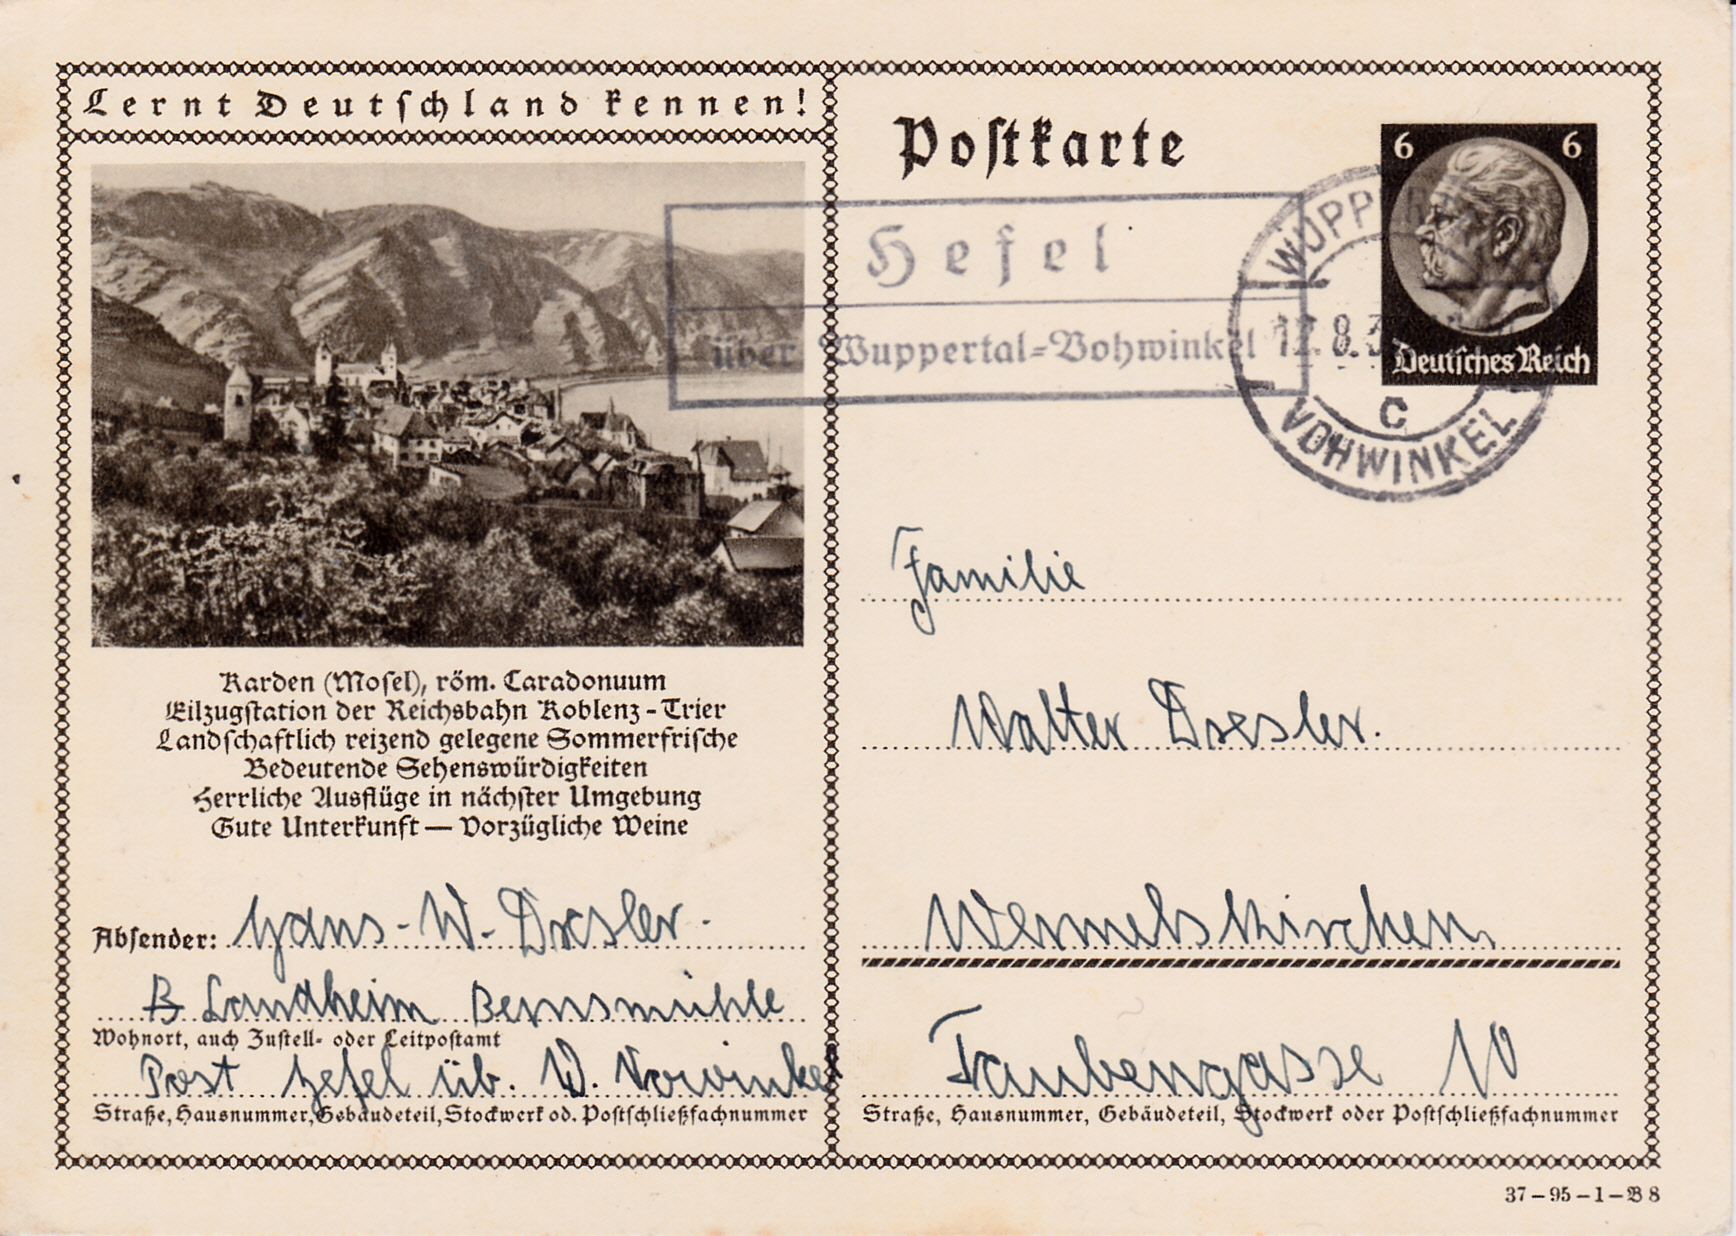 Lernt Deutschland kennen!
Postkarte
6 6
Deutsches Reich
Hefel
über Wuppertal-Vohwinkel
WUPP
12.8.3
C
VOHWINKEL
Karden (Mosel), röm. Caradonuum
Eilzugstation der Reichsbahn Koblenz - Trier
Landschaftlich reizend gelegene Sommerfrische
Bedeutende Sehenswürdigkeiten
Herrliche Ausflüge in nächster Umgebung
Gute Unterkunft — Vorzügliche Weine
Absender: Hans-W. Dresler.
Landheim Bernsmühle
Wohnort, auch Zustell- oder Leitpostamt
Post Hefel üb. W. Vowinkel
Straße, Hausnummer, Gebäudeteil, Stockwerk od. Postschließfachnummer
Familie
Walter Dresler.
Wermelskirchen
Taubengasse 10
Straße, Hausnummer, Gebäudeteil, Stockwerk oder Postschließfachnummer
37-95-1-B 8